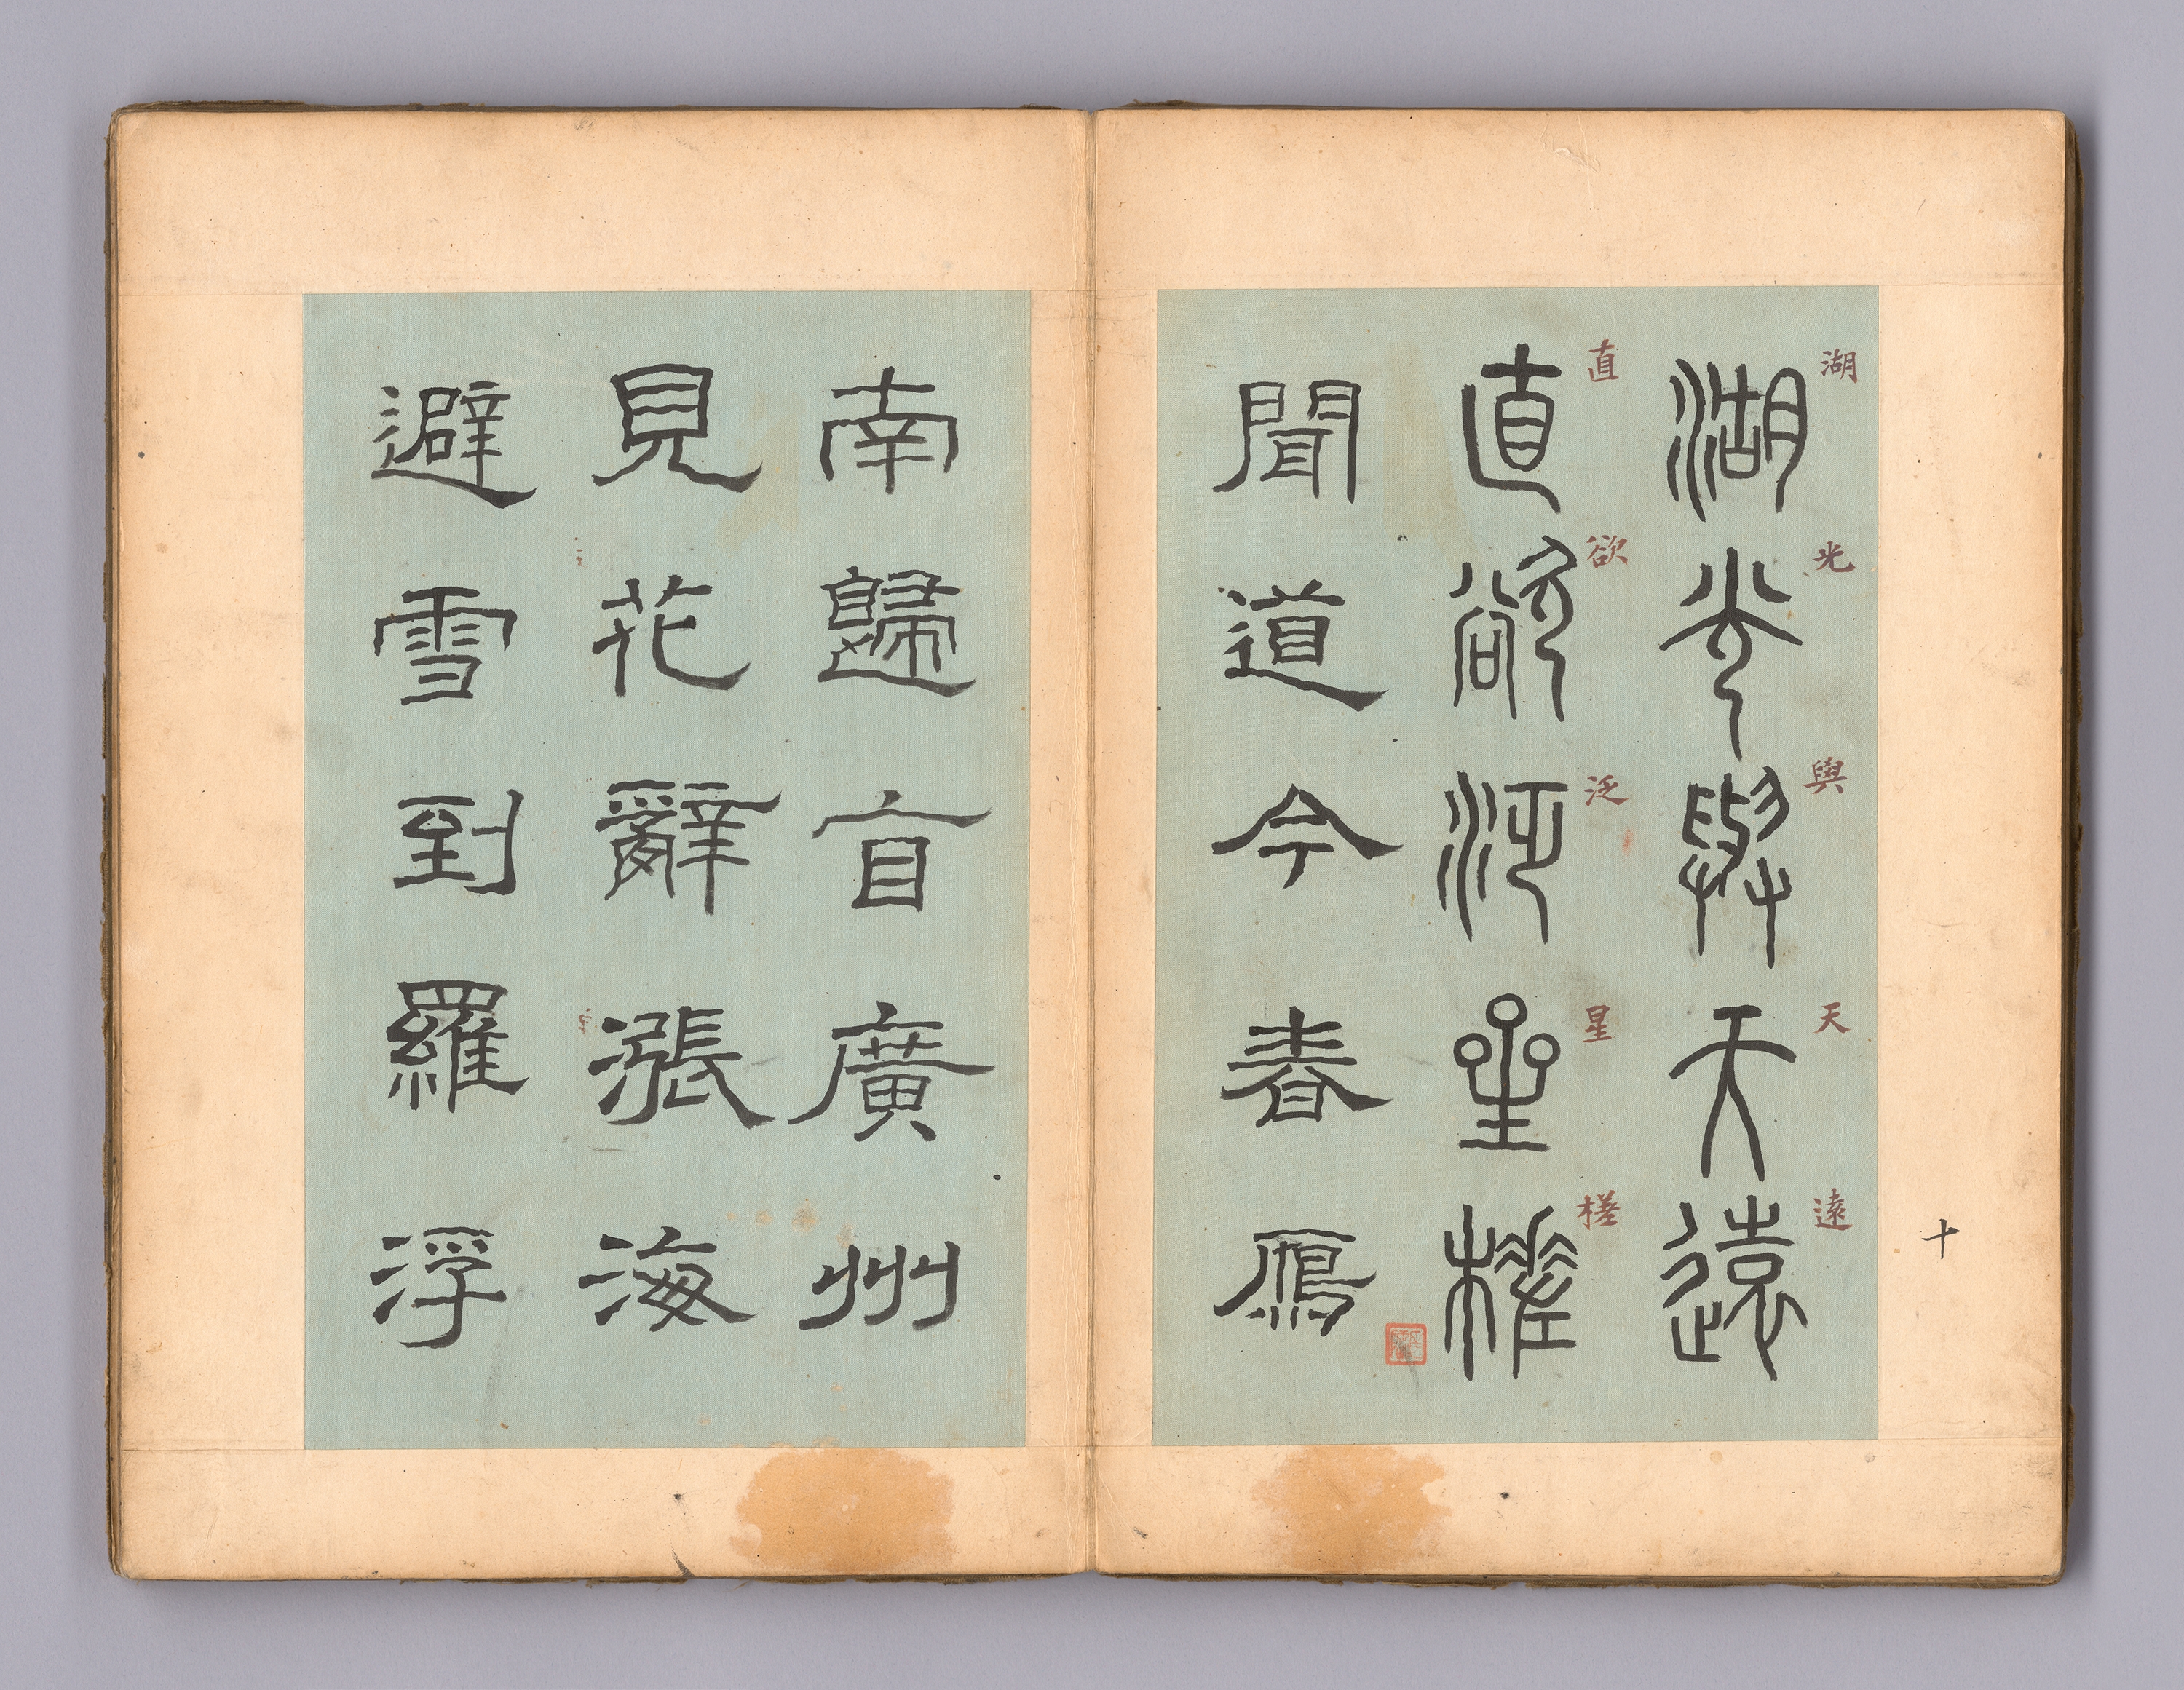 十
湖光與天遠
湖光與天遠
直欲泛星槎
直欲泛星槎
聞道今春鴈
南歸自廣州
見花辭漲海
避雪到羅浮